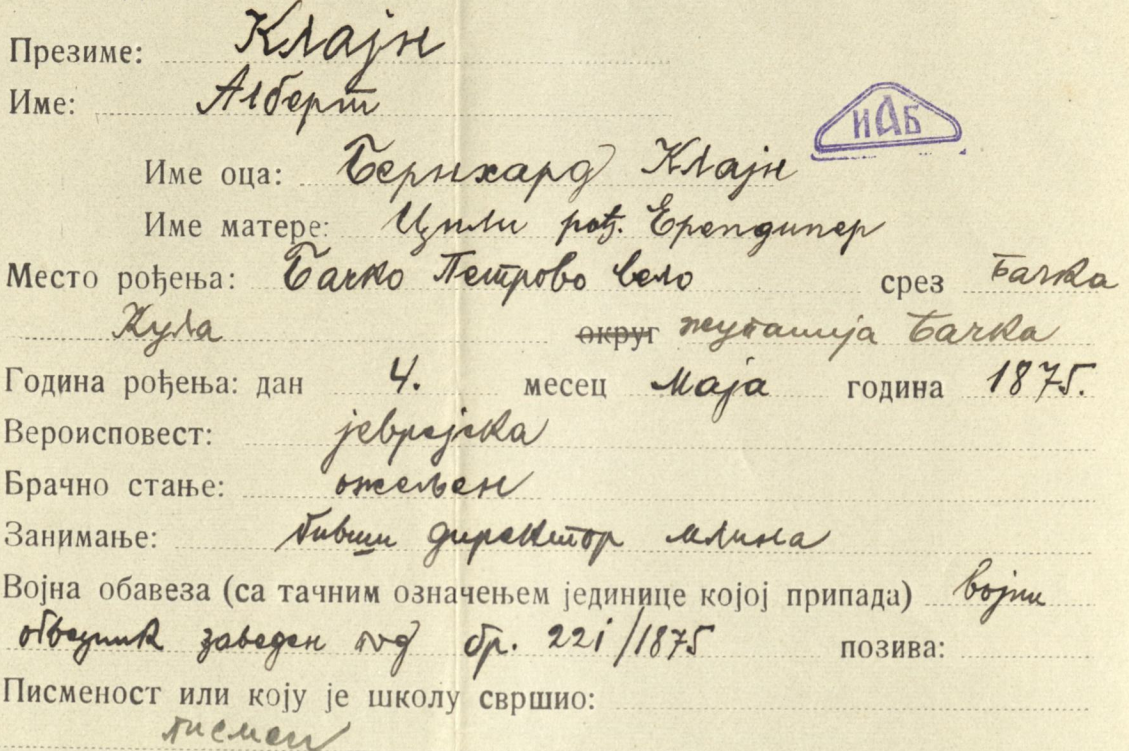 Презиме: Клајн
Име: Алберт
ИАБ
Име оца: Бернхард Клајн
Име матере: Цили рођ.
Место рођења: Бачко Петрово село срез Бачка
Кула округ жупанија Бачка
Година рођења: дан 4. месец маја година 1875.
Вероисповест: јеврејска
Брачно стање: ожељен
Занимање: бивши директор млина
Војна обавеза (са тачним означењем јединице којој припада) војни
обвезник заведен под бр. 221/1875 позива:
Писменост или коју је школу свршио:
писмен